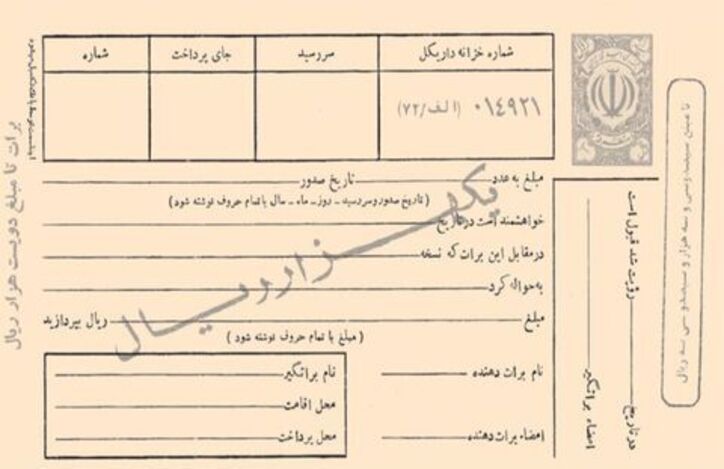 شماره خزانه داریکل
سررسید
جای پرداخت
شماره
۰۱۴۹۲۱ (الف/۷۲)
مبلغ به عدد تاریخ صدور
(تاریخ صدور و سررسید ـ روز ـ ماه ـ سال با تمام حروف نوشته شود)
خواهشمند است در تاریخ
در مقابل این برات که نسخه
به حواله کرد
مبلغ ریال بپردازید
(مبلغ با تمام حروف نوشته شود)
یکهزار ریال
نام برات دهنده
امضاء برات دهنده
نام براتگیر
محل اقامت
محل پرداخت
رؤیت شد قبول است
در تاریخ
امضاء براتگیر
تا مبلغ سیصد و سی و سه هزار و سیصد و سی سه ریال
برات تا مبلغ دویست هزار ریال